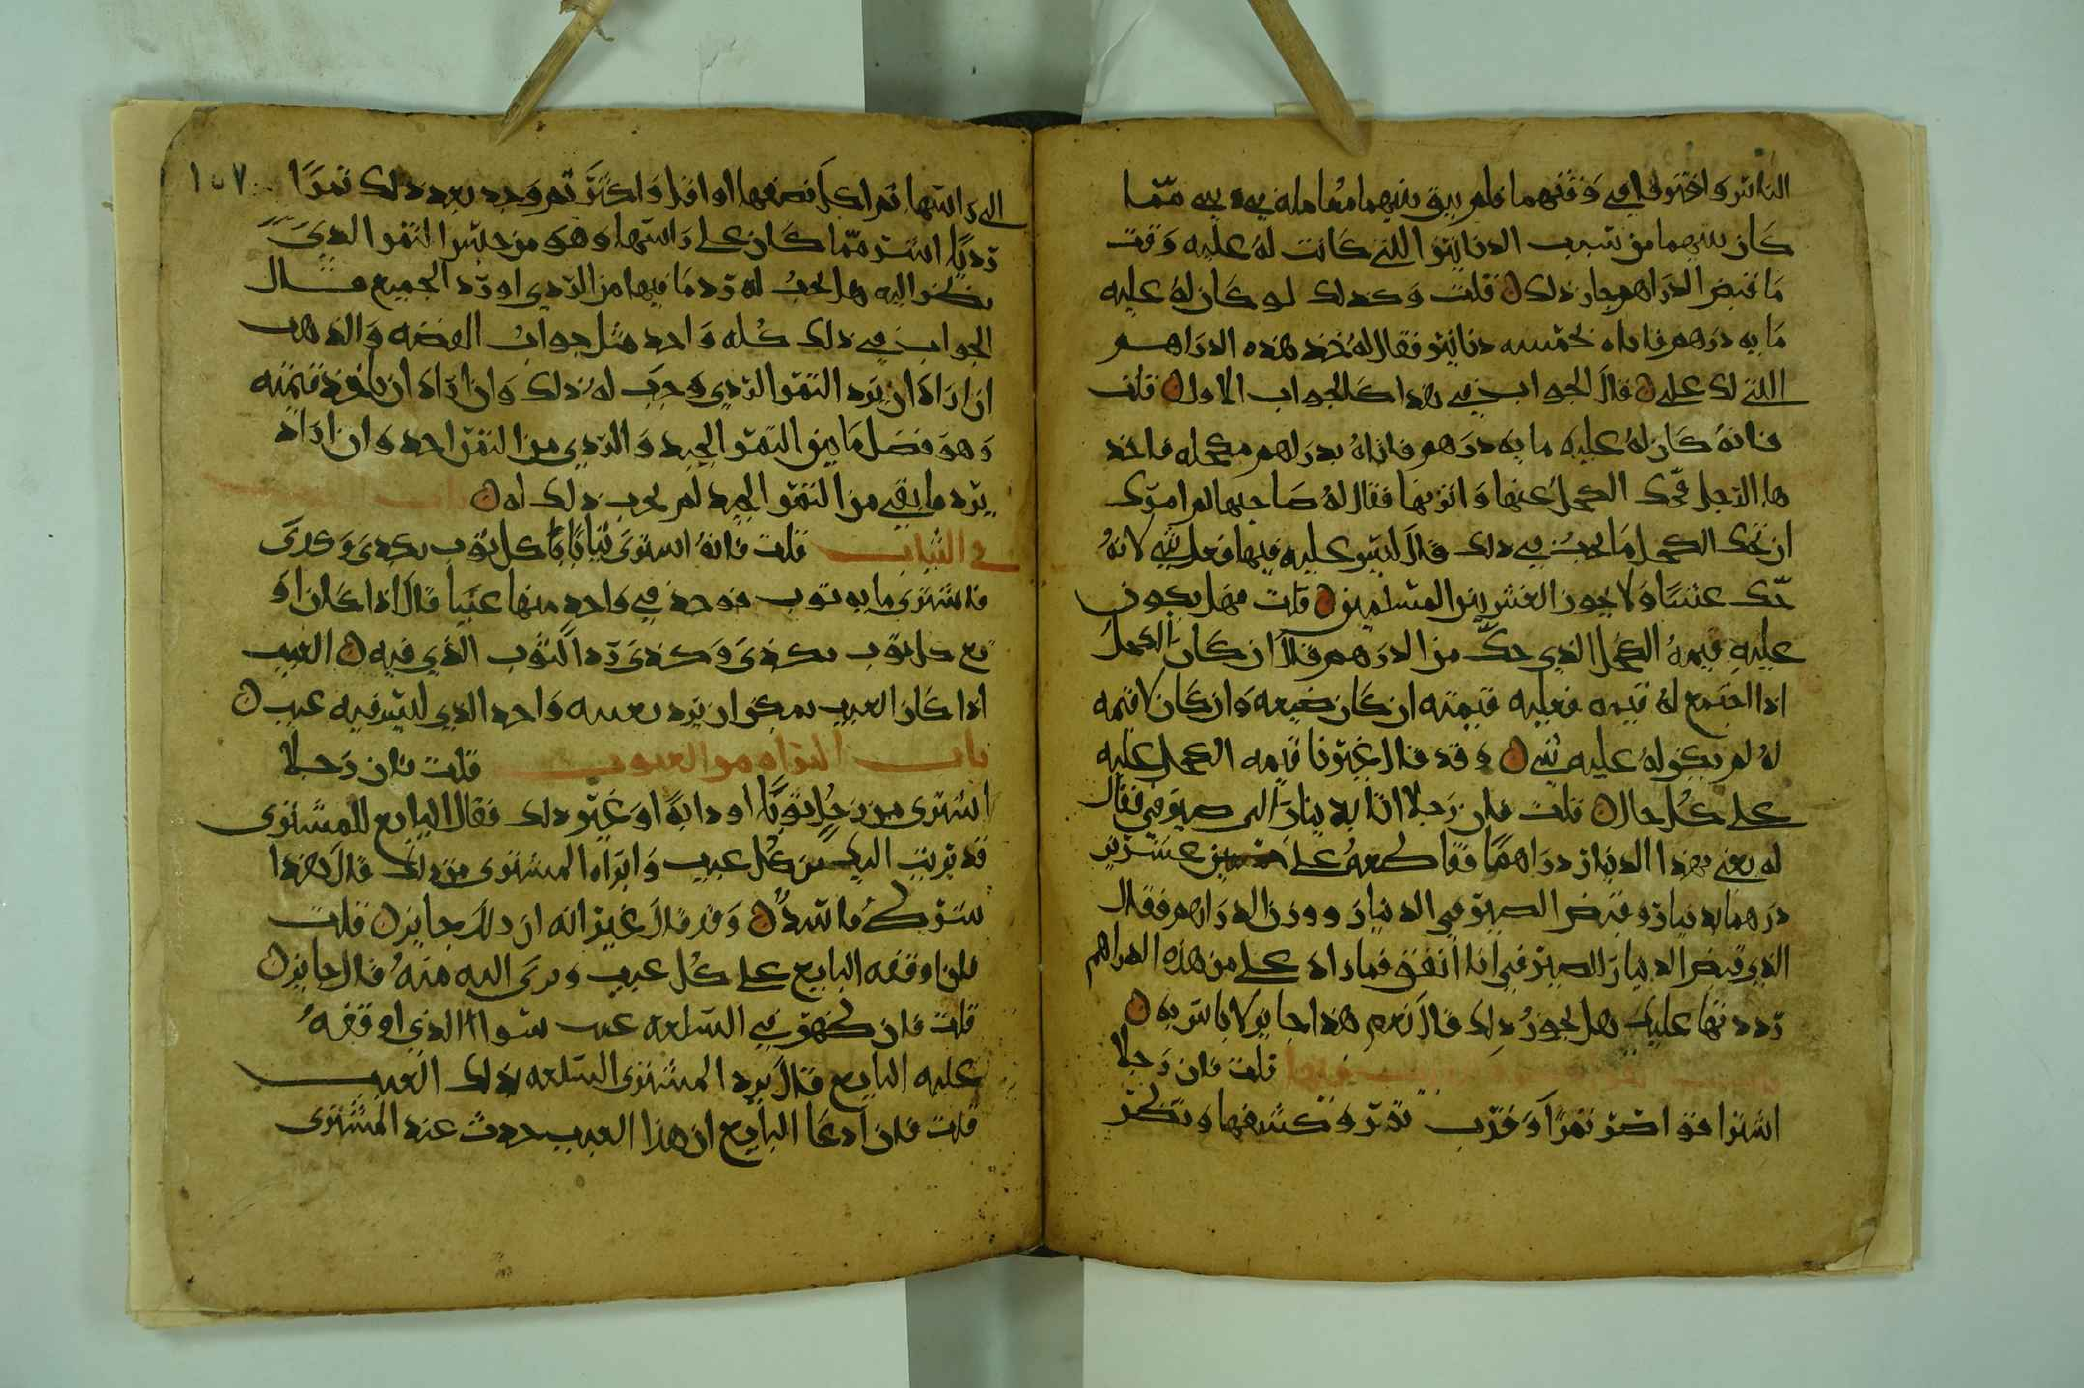 الناس وافترقا في وقتهما فلم يبق بينهما معامله في شي مما
كان بينهما من سبب الدنانير اللتي كانت له عليه وقت
ما قبض الدراهم جاز ذلك قلت وكذلك لو كان له عليه
مايه درهم فاتاه بخمسه دنانير فقال له خذ هذه الدراهم
اللتي لك علي قال الجواب في هذا كالجواب الاول قلت
فانه كان له عليه مايه درهم فاتاه بدراهم مكحله فاخذ
ها الرجل فحك الكحل عنها واتزنها فقال له صاحبها لم امرك
ان تحك الكحل ما يجب في ذلك قال ليس عليه فيها فعل شي لانه
حك غشا ولا يجوز الغش بين المسلمين قلت فهل يكون
عليه قيمه الكحل الذي حك من الدرهم قال ان كان الكحل
اذا اجتمع له قيمه فعليه قيمته ان كان ضيعه وان كان لا قيمه
له لم يكن له عليه شي وقد قال غيرنا قيمه الكحل عليه
على كل حال قلت فان رجلا اتا بدينار الى صيرفي فقال
له بعني بهذا الدينار دراهما فقاطعه على عشرين
درهما بدينار وقبض الصيرفي الدينار ووزن الدراهم فقال
الذي قبض الدينار الصيرفي انا انفق فما راد علي من هذه الدراهم
رددتها عليك هل يجوز ذلك قال نعم هذا جايز لا باس به
قلت فان رجلا
اشترا قوصر تمرا وقرب تمر وكشفها ونظر
١٥٧
الى راسها ثم اكل نصفها او اقل او اكثر ثم وجد بعد ذلك تمرا
رديا اشر مما كان على راسها وهو من جنس التمر الذي
نظر اليه هل يجب له رد ما فيها من الردي او رد الجميع قال
الجواب في ذلك كله واحد مثل جواب الفضه والذهب
ان اراد ان يرد التمر الردي وجب له ذلك وان اراد ان ياخذ قيمته
وهو فضل ما بين التمر الجيد والردي من التمر اخذ وان اراد
يرد ما بقي من التمر الجيد لم يجب ذلك له باب
في الثياب قلت فانه اشترى ثيابا كل ثوب بكذى وكذى
فاشترى مايه ثوب فوجد في واحد منها عيبا قال اذا كان
بيع كل ثوب بكذى وكذى رد الثوب الذي فيه العيب
اذا كان العيب يمكن ان يرد بعينه واخذ الذي ليس فيه عيب
باب البراه من العيوب قلت فان رجلا
اشترى من رجل ثوبا او دابه او غير ذلك فقال البايع للمشترى
قد بريت اليك من كل عيب وابراه المشترى من ذلك قال هذا
شرط فاسد وقد قال غيرنا انه ان ذلك جايز قلت
فان اوقفه البايع على كل عيب وبرى اليه منه قال جايز
قلت فان ظهر في السلعه عيب سوا الذي اوقفه
عليه البايع قال يرد المشترى السلعه بذلك العيب
قلت فان ادعا البايع ان هذا العيب حدث عند المشترى